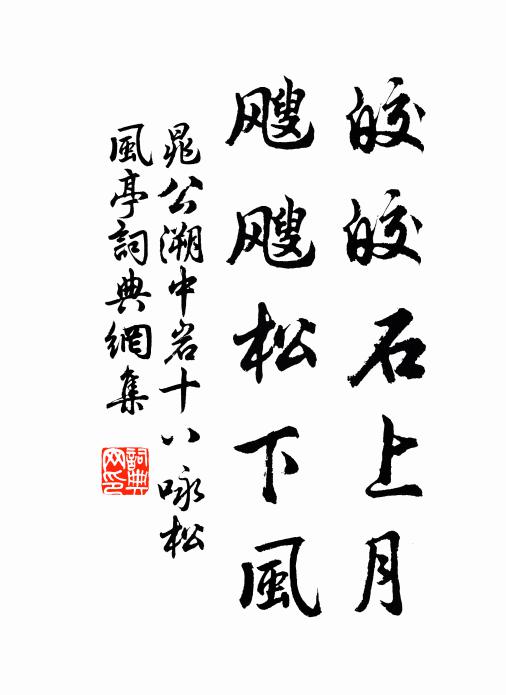 皎皎石上月
颼颼松下風
晁公溯中岩十八咏松
風亭詞典網集
詞典
网印